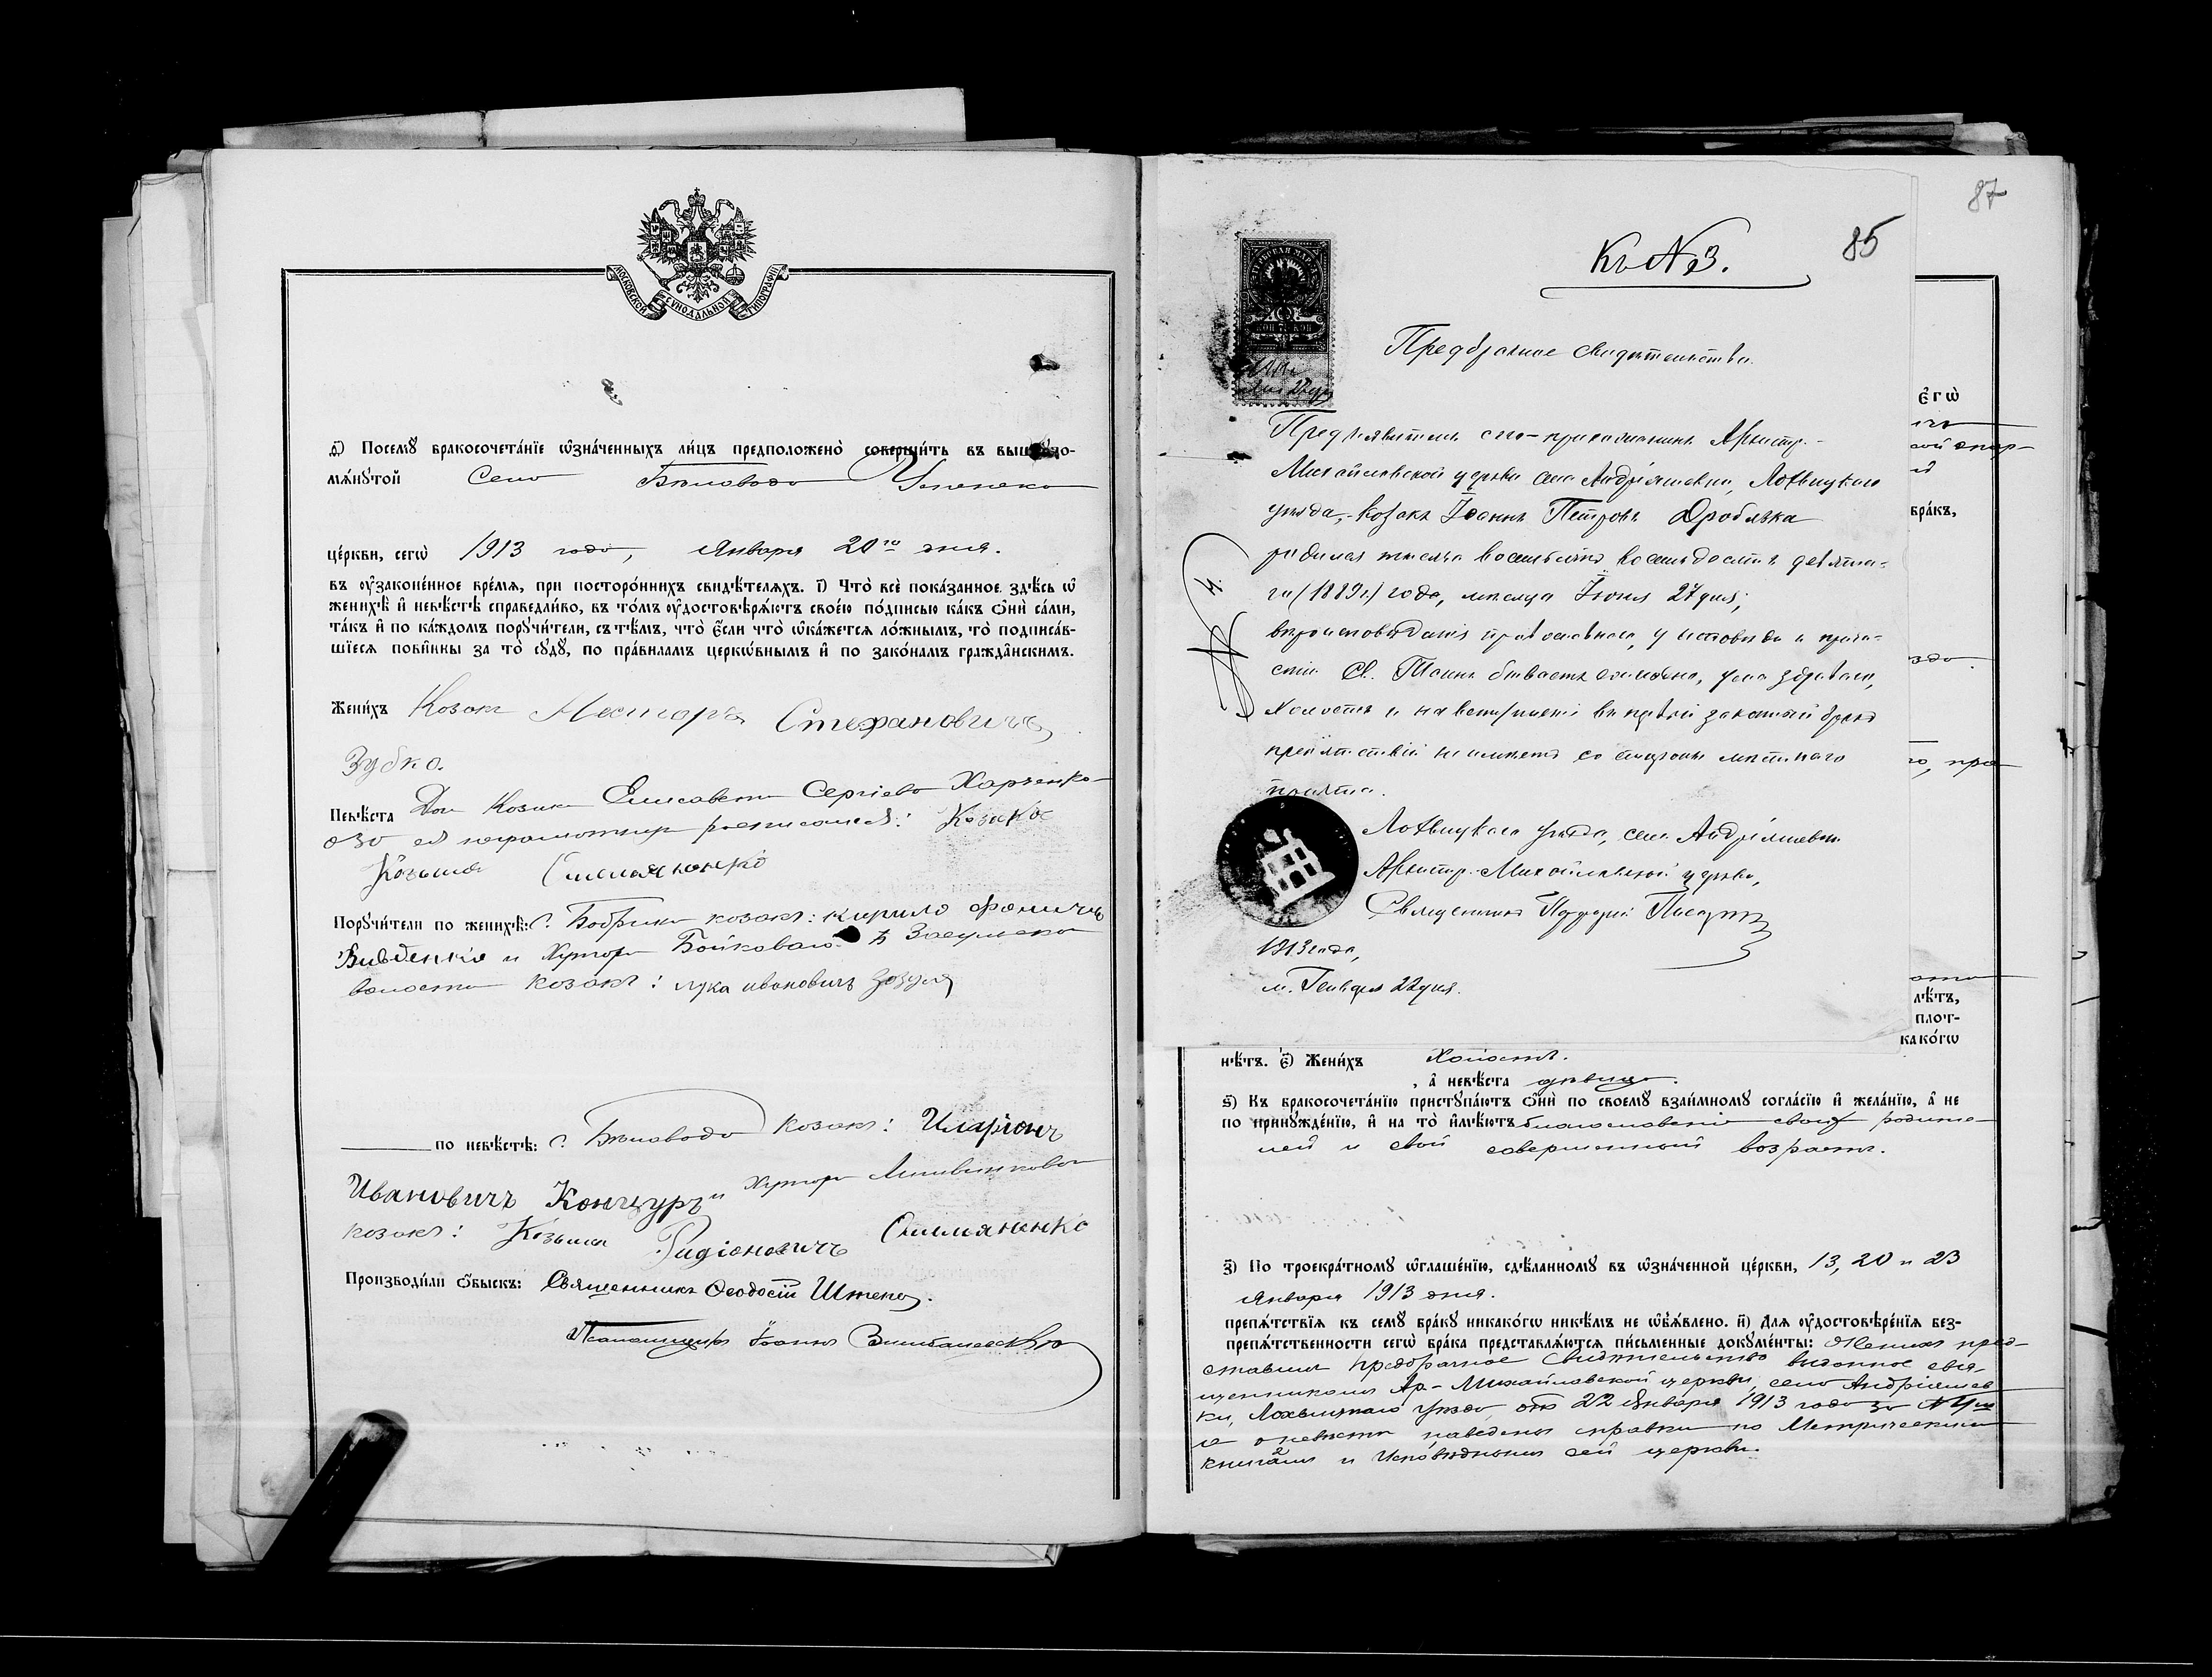 МОСКОВСКОЙ СѴНОДАЛЬНОЙ ТИПОГРАФІИ
д҃) Посемꙋ̀ бракосочета́нїе ѡ҆зна́ченныхъ ли́цъ предположено̀ соверши́ть въ вышеꙋпо-
мѧ́нꙋтой Села Бѣловода Успенской
це́ркви, сегѡ̀ 1913 года, Января 20го дня.
въ оу҆законе́нное вре́мѧ, при посторо́ннихъ свидѣ́телѧхъ. і҃) Что̀ всѐ пока́занное здѣ́сь ѡ҆
женихѣ̀ и҆ невѣ́стѣ справедли́во, въ то́мъ оу҆достовѣрѧ́ютъ свое́ю по́дписью ка́къ ѻ҆нѝ са́ми,
та́къ и҆ по ка́ждомъ порꙋчи́тели, съ тѣ́мъ, что̀ є҆́сли что̀ ѡ҆ка́жетсѧ ло́жнымъ, то̀ подписа́в-
шїесѧ пови́нны за то̀ сꙋдꙋ̀, по пра́виламъ церкѡ́внымъ и҆ по зако́намъ гражда̂нскимъ.
Жени́хъ Козакъ Несторъ Стефановичъ
Зубко.
Невѣ́ста Доч Козака Елисавета Сергіева Харченко
а за ея неграмотную росписался: Козакъ
Козьма Омельяненко
Порꙋчи́тели по женихѣ̀: с. Бобрика козакъ: Кирило Фомичъ
и Хутора Бойковаго Засульской
волости козакъ: Лука Ивановичъ Зозуля
по невѣ́стѣ: с. Бѣловода козакъ: Иларіонъ
Ивановичъ Кончуръ и Хутора Литвинкова
козакъ: Козьма Родіоновичъ Омельяненко
Производи́ли ѻ҆́быскъ: Священникъ Ѳеодосій
Псаломщикъ Іоаннъ
87
85
Къ № 3.
Предбрачное свидѣтельство.
Предъявитель сего – прихожанинъ Архистр.-
Михайловской церкви села Андріяшевки, Лохвицкаго
уѣзда,- козакъ Іоаннъ Петровъ Дроблѣка
родился тысяча восемьсотъ восемьдесятъ девята-
го (1889 г.) года, мѣсяца Іюня 27 дня;
вѣроисповѣданія православнаго, у исповѣди и прича-
стія Св. Таинъ бываетъ ежегодно, ума здраваго,
холостъ и на вступленіе въ первый законный бракъ
препятствій не имѣетъ со стороны мѣстнаго
причта.
Лохвицкаго уѣзда, села Андріяшевки
Архистр.-Михайловской церкви,
Священникъ
1913 года,
м. Генваря 22 дня.
№ 4.
є҆гѡ̀
бра́къ,
лѣ́тъ,
плот-
како́гѡ
нѣ́тъ. є҃) Жени́хъ холостъ.
, а҆ невѣ́ста дѣвица.
ѕ҃) Къ бракосочета́нїю пристꙋпа́ютъ ѻ҆нѝ по своемꙋ̀ взаи́мномꙋ согла́сїю и҆ жела́нїю, а҆ не
по принꙋжде́нїю, и҆ на то̀ и҆мѣ́ютъ благословеніе своихъ родите-
лей и свой совершенный возрастъ.
з҃) По троекра́тномꙋ ѡ҆глаше́нїю, сдѣ́ланномꙋ въ ѡ҆зна́ченной це́ркви, 13, 20 и 23
Января 1913 дня.
препѧ́тствїѧ къ семꙋ̀ бра́кꙋ никако́гѡ никѣ́мъ не ѡ҆б̾ѧ́влено. и҃) Для оу҆достовѣре́нїѧ без-
препѧ́тственности сегѡ̀ бра́ка представлѧ́ютсѧ пи́сьменные докꙋме́нты: Женихъ пред-
ставилъ предбрачное свидѣтельство выданное свя-
щенникомъ Ар-Михайловской церкви, села Андріяшев
ки, Лохвицкаго уѣзда, отъ 22 Января 1913 года за № 4мъ
а о невѣстѣ наведены справки по Метрическимъ
книгамъ и Исповѣднымъ сей церкви.